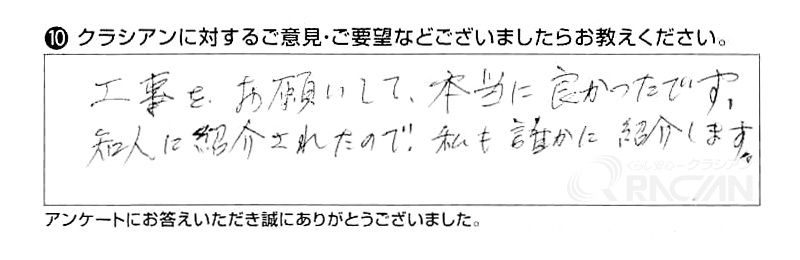 ⑩ クラシアンに対するご意見・ご要望などございましたらお教えください。
工事を、お願いして、本当に良かったです。
知人に紹介されたので、私も誰かに紹介します。
くらし安心クラシアン
QRACIAN
アンケートにお答えいただき誠にありがとうございました。